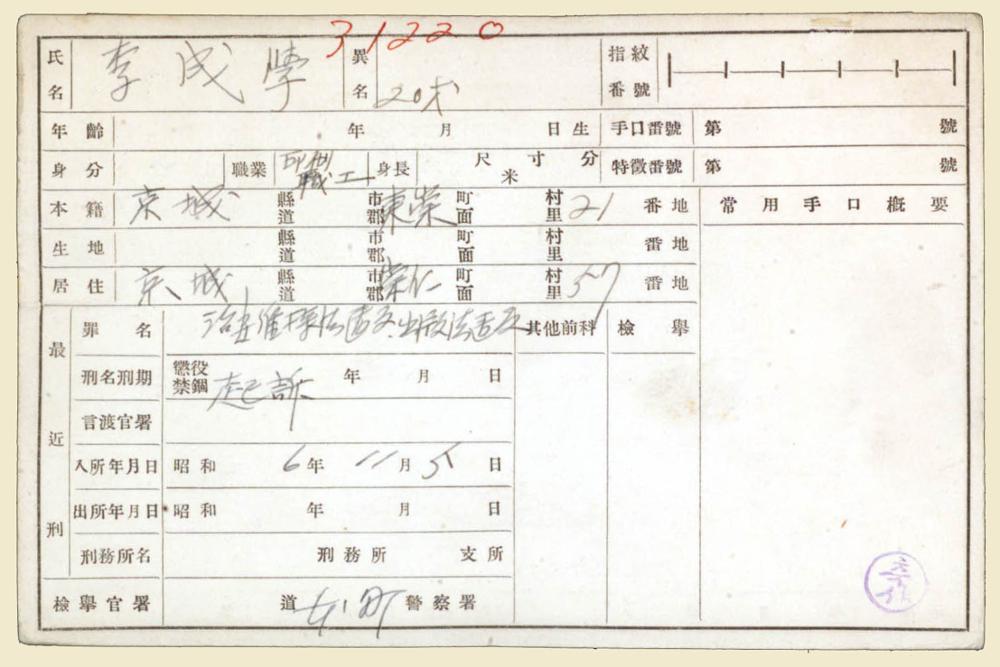 31220
氏名 李成學 異名 20才 指紋番號
年齡 年 月 日生 手口番號 第 號
身分 職業 印刷職工 身長 尺 寸 分 米 特徵番號 第 號
本籍 京城 縣道 市郡 東崇 町面 村里 21 番地 常用手口概要
生地 縣道 市郡 町面 村里 番地
居住 京城 縣道 市郡 崇仁 町面 村里 57 番地
最近刑
罪名 治安維持法違反 出版法違反 其他前科 檢擧
刑名刑期 懲役 禁錮 年 月 日
起訴
言渡官署
入所年月日 昭和 6年 11月 5日
出所年月日 昭和 年 月 日
刑務所名 刑務所 支所
檢擧官署 道 本町 警察署